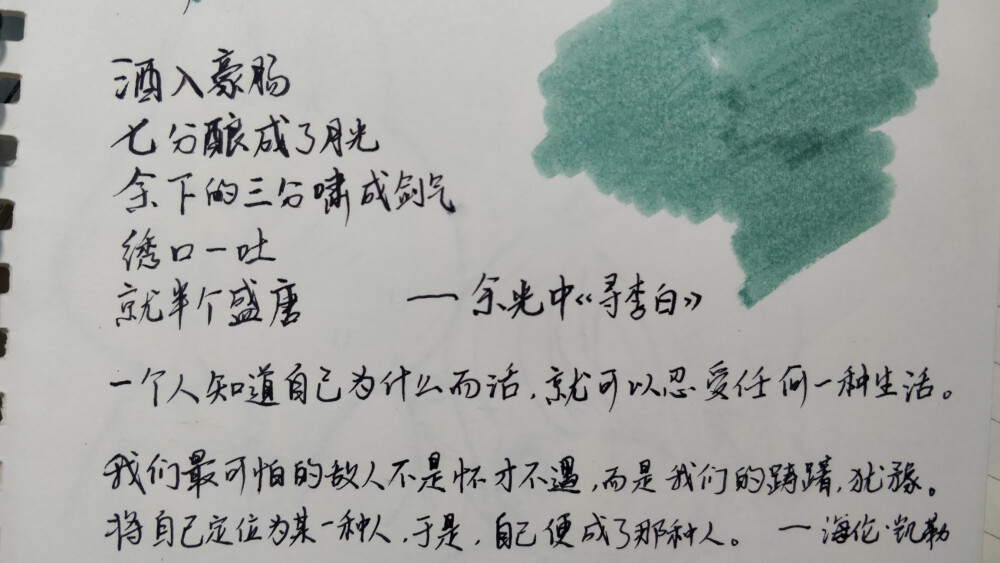 酒入豪肠
七分酿成了月光
余下的三分啸成剑气
绣口一吐
就半个盛唐 —余光中《寻李白》
一个人知道自己为什么而活，就可以忍受任何一种生活。
我们最可怕的敌人不是怀才不遇，而是我们的踌躇，犹豫。
将自己定位为某一种人，于是，自己便成了那种人。 —海伦·凯勒